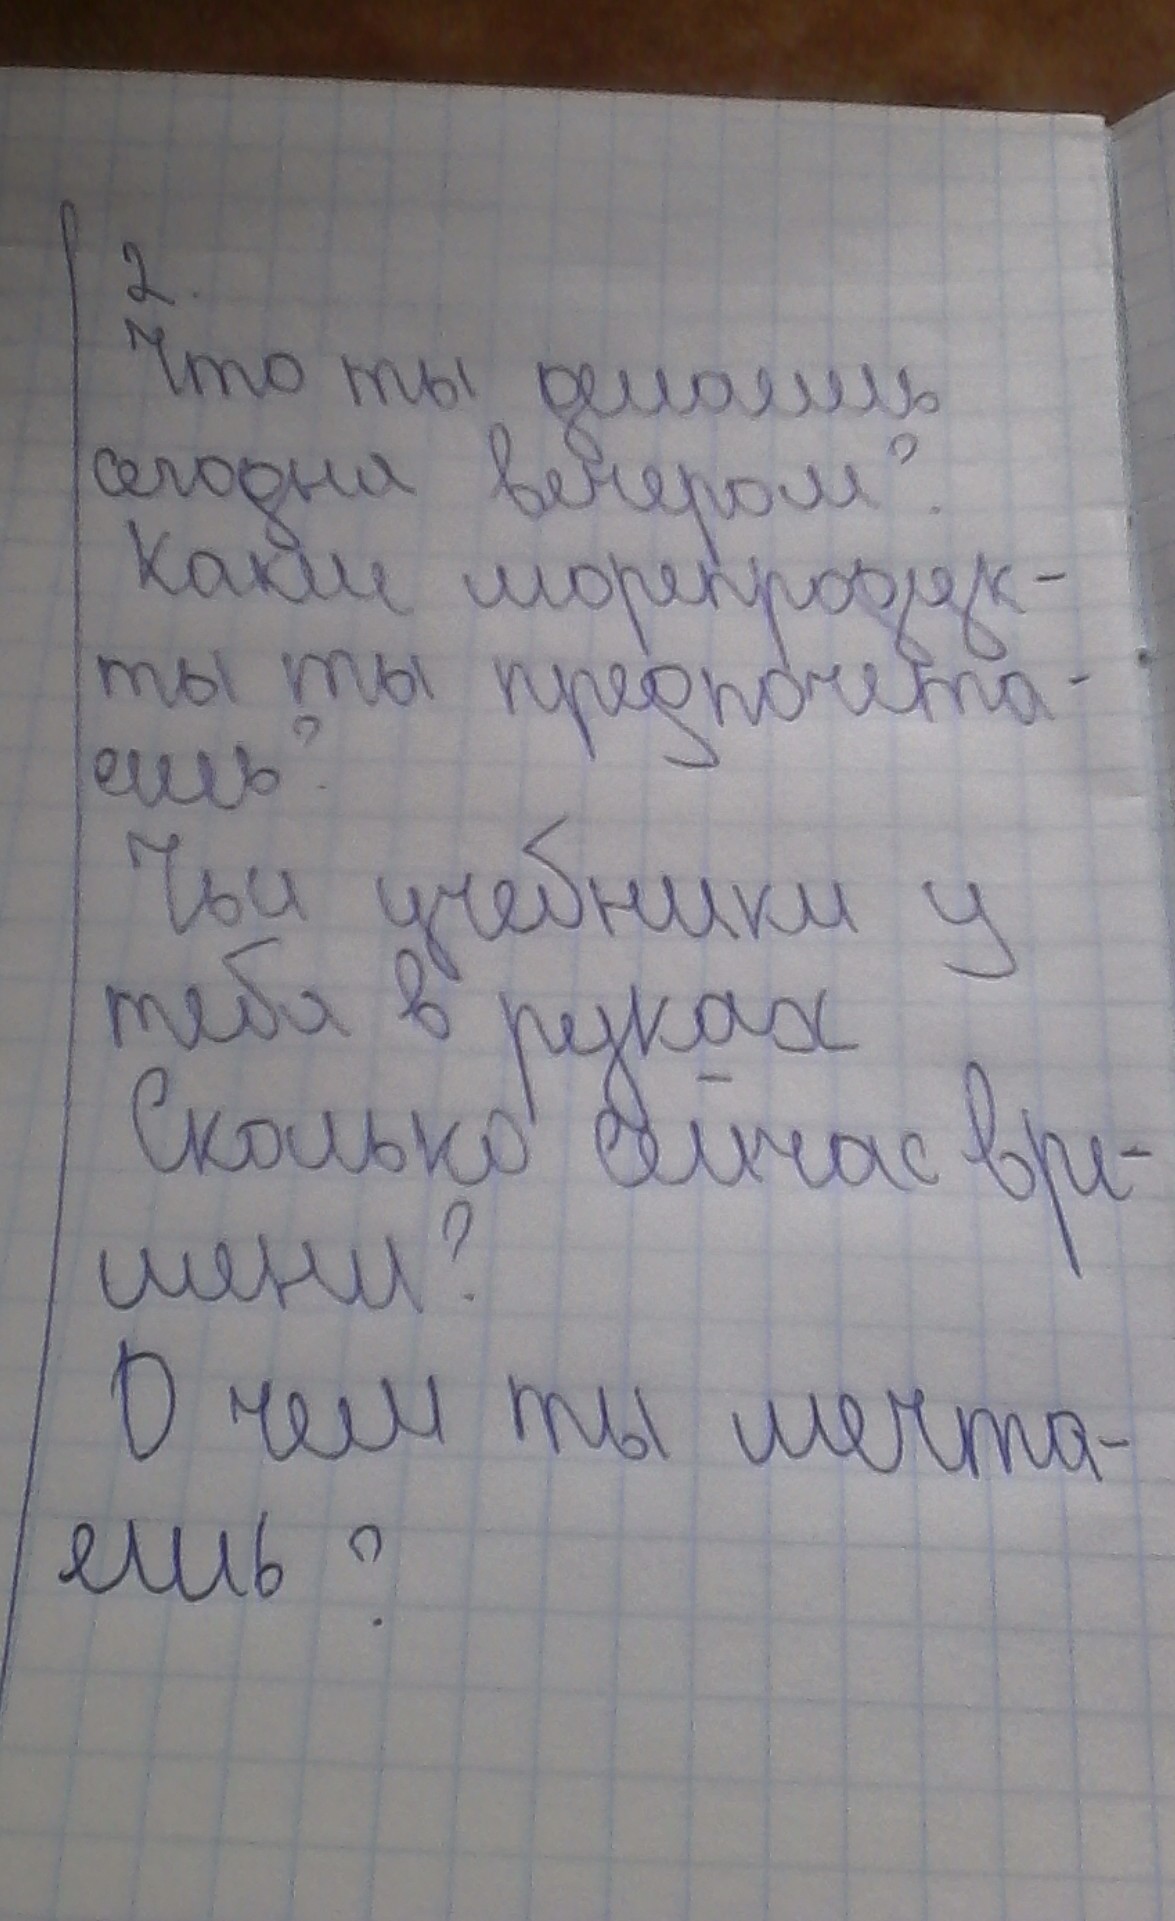 2.
Что ты делаешь
сегодня вечером?
Какие морепродук-
ты ты предпочета-
ешь?
Чьи учебники у
тебя в руках
Сколько сейчас вре-
мени?
О чем ты мечта-
ешь?